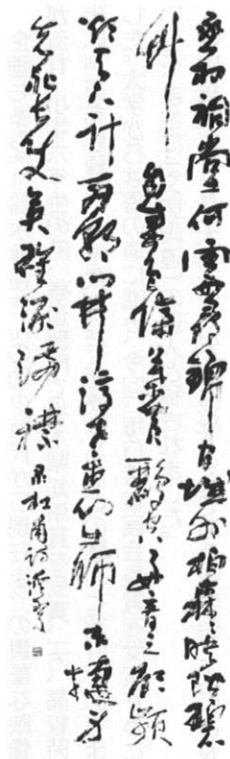 丞相祠堂何處尋錦官城外柏森々映階碧
草自春色隔葉黃鸝空好音三顧頻
煩天下計兩朝開濟老臣心出師未捷身
先死長使英雄淚滿襟 录杜甫詩